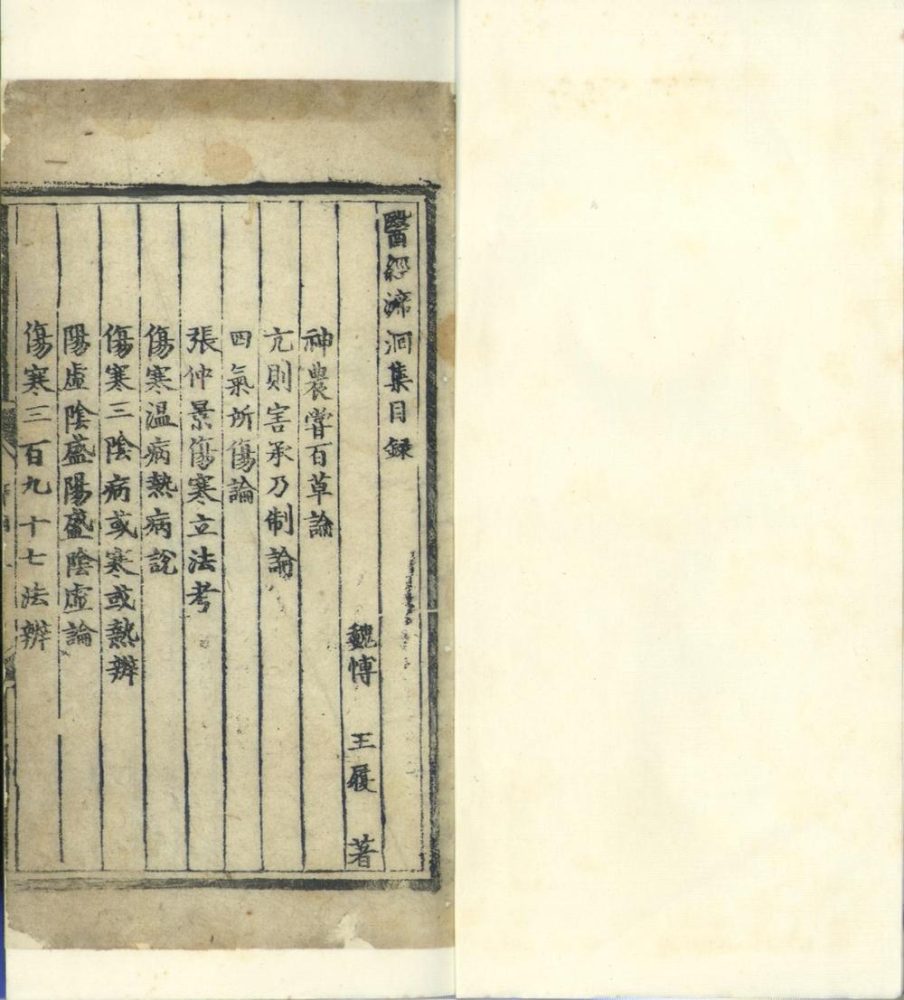 醫經泝洄集目錄
魏愽 王履 著
神農嘗百草論
亢則害承乃制論
四氣所傷論
張仲景傷寒立法考
傷寒温病熱病說
傷寒三陰病或寒或熱辨
陽虛陰盛陽盛陰虛論
傷寒三百九十七法辨